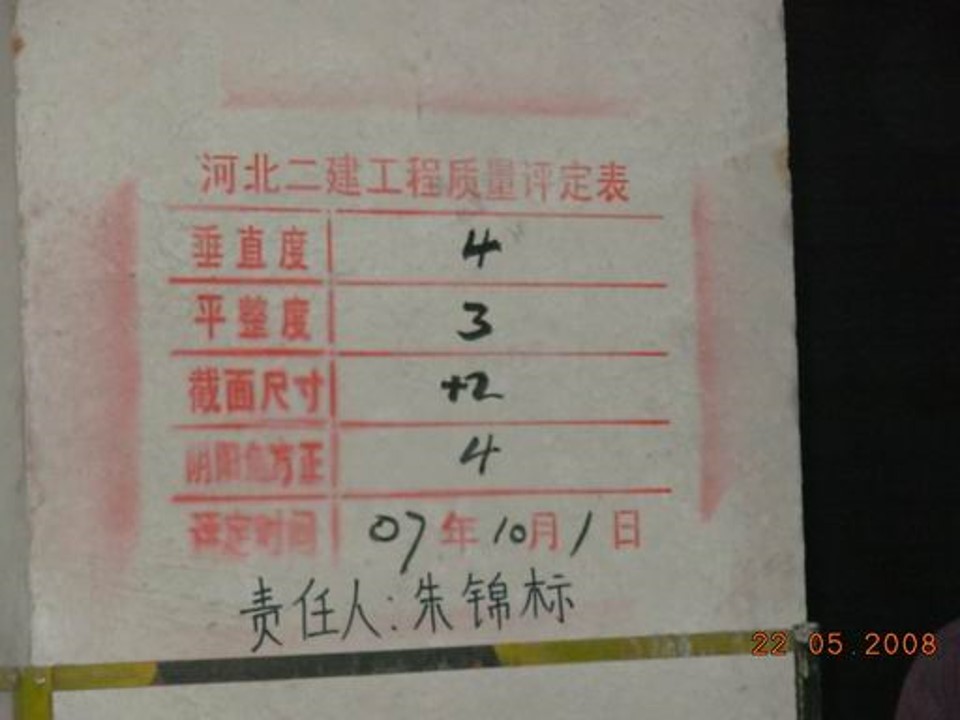 河北二建工程质量评定表
垂直度 4
平整度 3
截面尺寸 +2
阴阳角方正 4
评定时间 07年10月1日
责任人:朱锦标
22 05 2008